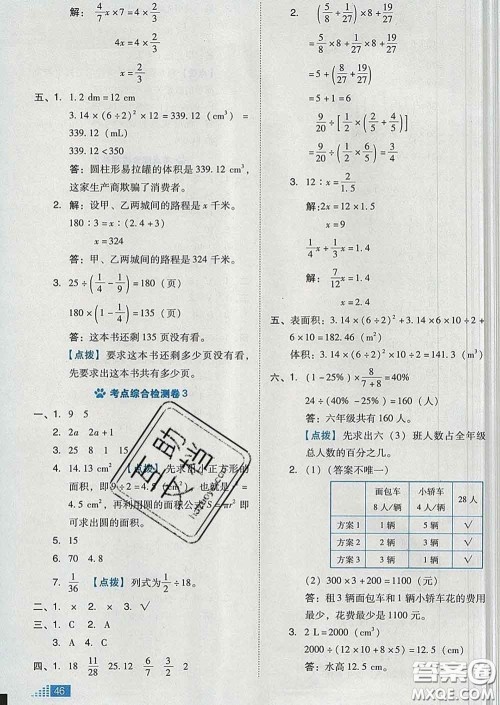 解：4/7 x×7=4×2/3
4x=4×2/3
x=2/3
五、1. 1.2 dm=12 cm
3.14×(6÷2)²×12=339.12(cm³)=
339.12(mL)
339.12<350
答：圆柱形易拉罐的体积是 339.12 cm³，
这家生产商欺骗了消费者。
2. 解：设甲、乙两城间的路程是 x 千米。
180∶3=x∶(2.4+3)
x=324
答：甲、乙两城间的路程是 324 千米。
3. 25÷(1/4-1/9)=180(页)
180×(1-1/4)=135(页)
答：这本书还剩 135 页没有看。
【点拨】要求这本书还剩多少页没有看，
先要求出这本书共有多少页。
考点综合检测卷 3
一、1. 9 5
2. 2a 2a+1
3. 25 8 1 15
4. 14.13 cm² 【点拨】先求出小正方形的
面积，即 9÷2=4.5(cm²)，也就是 r²=
4.5，再利用圆的面积公式 即
可求出圆的面积。
5. 15
6. 70 4.8
7. 1/36 【点拨】列式为 1/2÷18。
二、1. × 2. × 3. √
三、1. C 2. A
3. A 4. C
四、1. 18 11/28 25.12 6/7 3/2 2
46
2. (5/8+1/27)×8+19/27
=5/8×8+1/27×8+19/27
=5+(8/27+19/27)
=5+1
=6
9/20÷[1/2×(2/5+4/5)]
=9/20÷(1/2×6/5)
=9/20÷3/5
=3/4
3. 12∶x=2/1.5
解：2x=12×1.5
x=9
1/4x+1/3x=1.4
解：7/12x=1.4
x=2.4
五、表面积：3.14×(6÷2)²+3.14×6×10÷2+
6×10=182.46(m²)
体积：3.14×(6÷2)²×10÷2=141.3(m³)
六、1. (1-25%)×8/(7+8)=40%
24÷(40%-25%)=160(人)
答：六年级共有 160 人。
【点拨】先求出六(3)班人数占全年级
总人数的百分之几。
2. (1)(答案不唯一)
面包车 8人/辆 小轿车 4人/辆 28人
方案1 1 辆 5 辆 √
方案2 2 辆 3 辆 √
方案3 3 辆 1 辆 √
(2)300×3+200=1100(元)
答：租 3 辆面包车和 1 辆小轿车花的费
用最少，花费最少是 1100 元。
3. 2 L=2000 cm³
2000÷(12×
答：水高 12.5 cm。
互助文档
答案圈
MXQE.COM